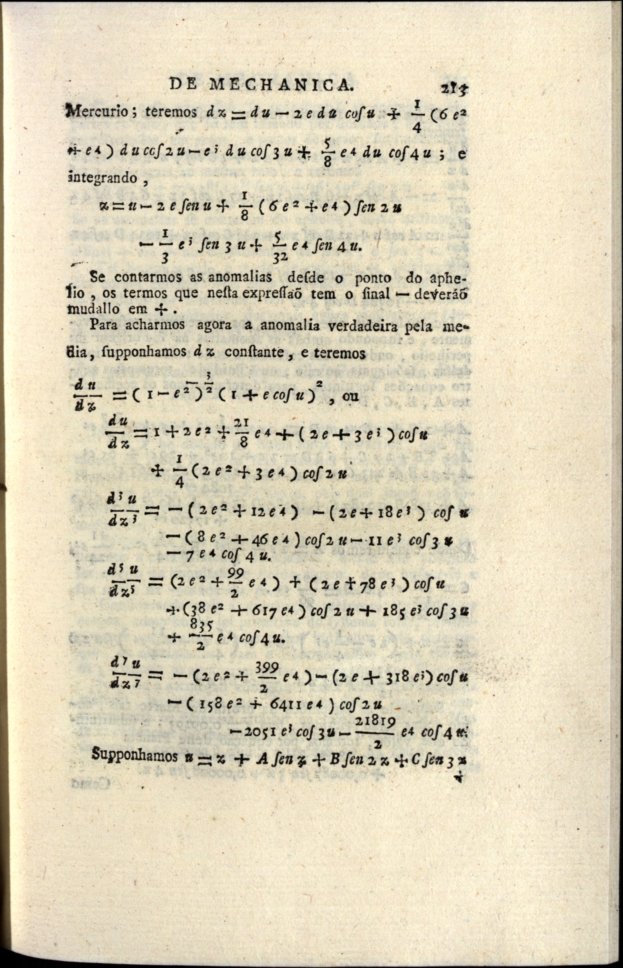 DE MECHANICA. 213
Mercurio; teremos dz = du — 2 e du coſu + 1/4 (6 e²
+ e⁴) du coſ 2 u — e³ du coſ 3 u + 5/8 e⁴ du coſ 4 u; e
integrando,
z = u — 2 e ſen u + 1/8 (6 e² + e⁴) ſen 2 u
— 1/3 e³ ſen 3 u + 5/32 e⁴ ſen 4 u.
Se contarmos as anomalias deſde o ponto do aphe-
lio, os termos que neſta expreſſaõ tem o ſinal — deveráõ
mudallo em +.
Para acharmos agora a anomalia verdadeira pela me-
dia, ſupponhamos dz conſtante, e teremos
du/dz = (1 — e²)^(-3/2) (1 + e coſu)², ou
du/dz = 1 + 2 e² + 21/8 e⁴ + (2 e + 3 e³) coſu
+ 1/4 (2 e² + 3 e⁴) coſ 2 u
d³u/dz³ = — (2 e² + 12 e⁴) — (2 e + 18 e³) coſ u
— (8 e² + 46 e⁴) coſ 2 u — 11 e³ coſ 3 u
— 7 e⁴ coſ 4 u.
d⁵u/dz⁵ = (2 e² + 99/2 e⁴) + (2 e + 78 e³) coſu
+ (38 e² + 617 e⁴) coſ 2 u + 185 e³ coſ 3 u
+ 835/2 e⁴ coſ 4 u.
d⁷u/dz⁷ = — (2 e² + 399/2 e⁴) — (2 e + 318 e³) coſu
— (158 e² + 6411 e⁴) coſ 2 u
— 2051 e³ coſ 3 u — 21819/2 e⁴ coſ 4 u.
Supponhamos u = z + A ſen z + B ſen 2 z + C ſen 3 z
+